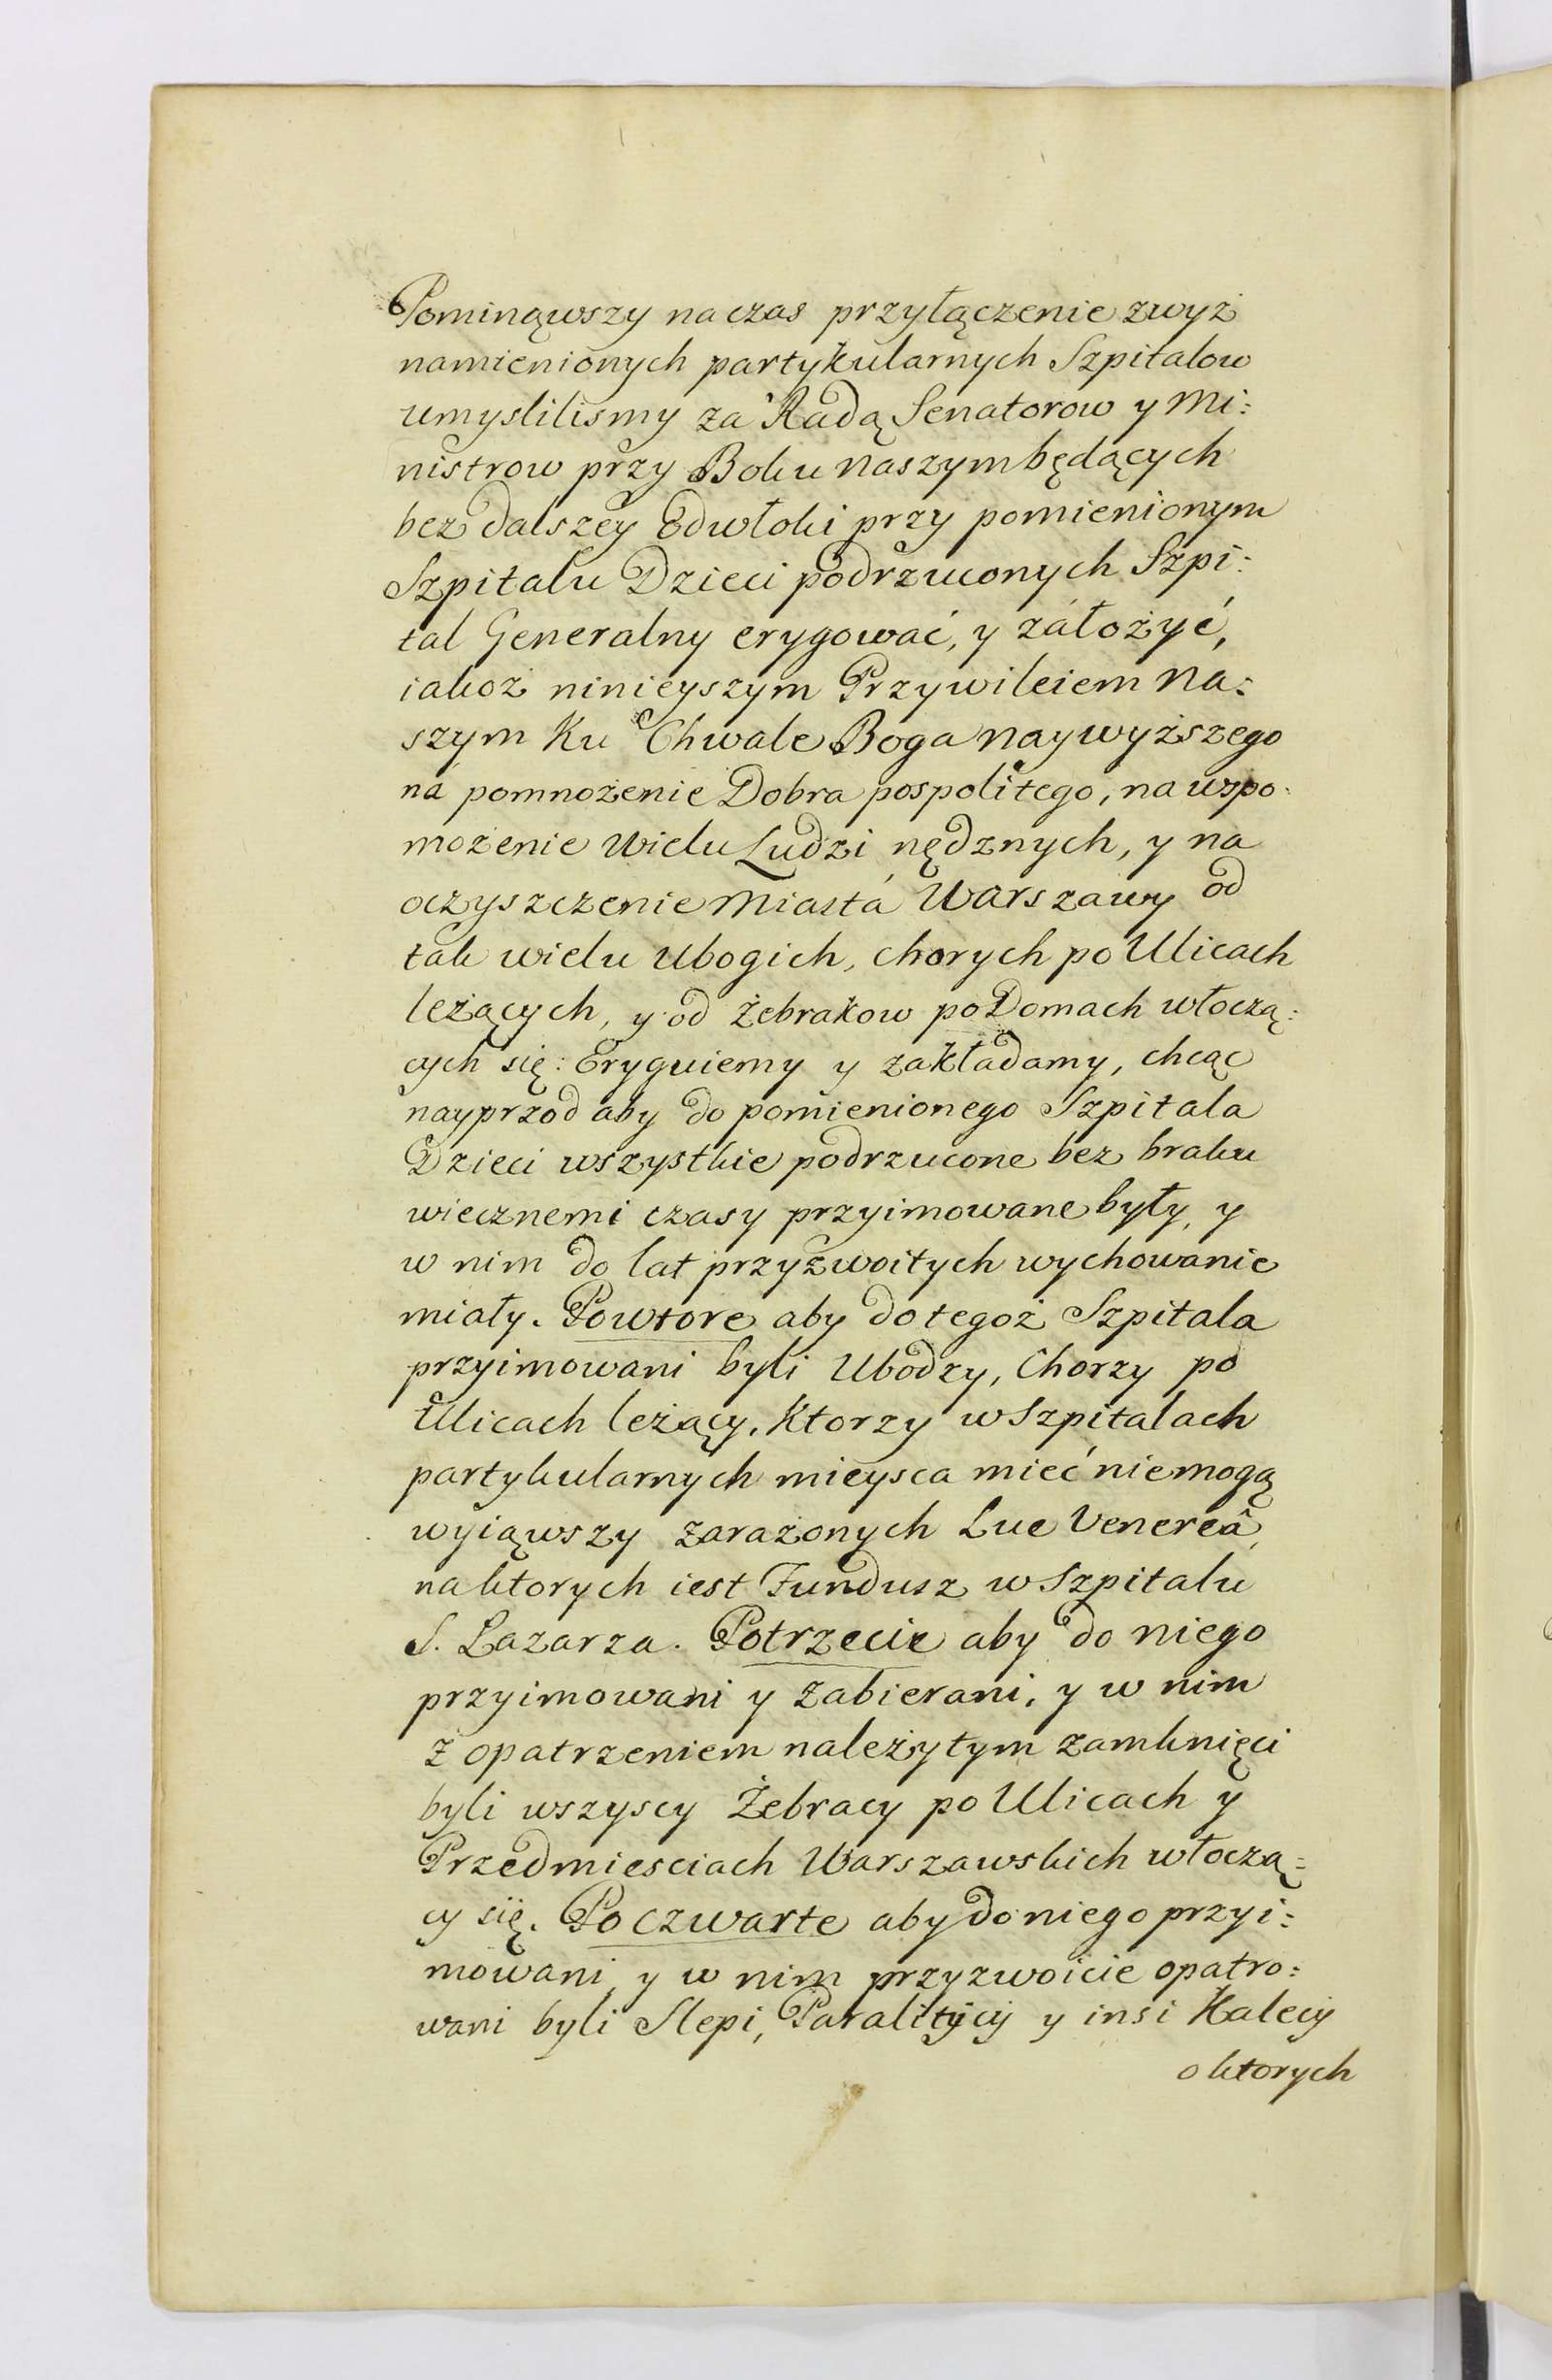 Pominąwszy na czas przyłączenie zwyż
namienionych partykularnych Szpitalow
umyslilismy za Radą Senatorow y Mi:
nistrow przy Boku naszym będących
bez dalszey Odwłoki przy pomienionym
Szpitalu Dzieci podrzuconych Szpi:
tal Generalny erygować, y záłożyć,
iakoż ninieyszym Przywileiem Na:
szym Ku Chwale Boga naywyższego
ná pomnożenie Dobra pospolitego, na wspo:
możenie wielu Ludzi nędznych, y na
oczyszczenie Miastá Warszawy od
tak wielu Ubogich, chorych po Ulicach
leżących, y od Żebrakow po Domach włoczą:
cych się: Eryguiemy y zakładamy, chcąc
nayprzod aby do pomienionego Szpitala
Dzieci wszystkie podrzucone bez braku
wiecznemi czasy przyimowane były, y
w nim do lat przyzwoitych wychowanie
miały. Powtore aby do tegoż Szpitala
przyimowani byli Ubodzy, Chorzy po
Ulicach leżący, Ktorzy w Szpitalach
partykularnych mieysca mieć niemogą
wyiąwszy zarażonych Lue Venereâ,
na ktorych iest Fundusz w Szpitalu
S. Lazarza. Potrzecie aby do niego
przyimowani y zabierani, y w nim
z opatrzeniem należytym zamknięci
byli wszyscy Żebracy po Ulicach y
Przedmiesciach Warszawskich włoczą:
cy się. Poczwarte aby do niego przyi:
mowani y w nim przyzwoicie opatro:
wani byli Slepi, Paralitycy y insi Kalecy
o ktorych